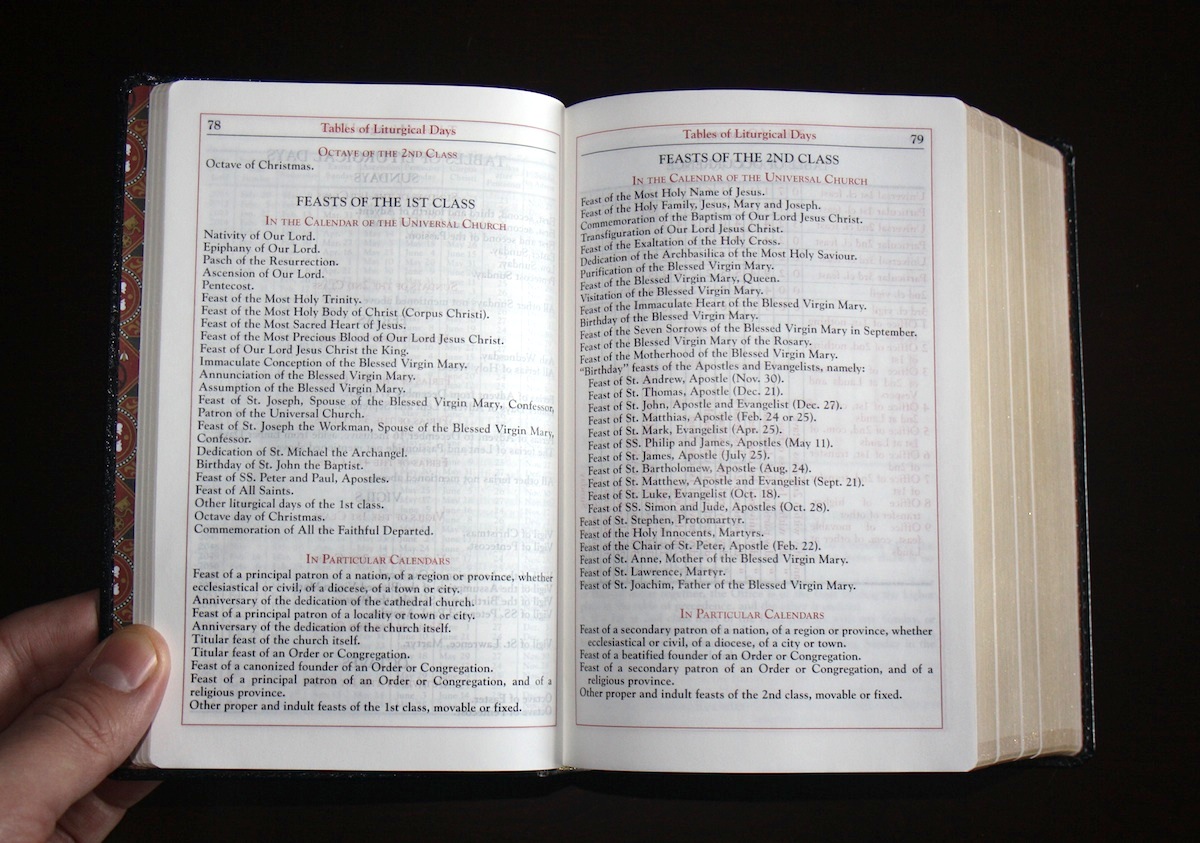 78
Tables of Liturgical Days
Octave of the 2nd Class
Octave of Christmas.
FEASTS OF THE 1ST CLASS
In the Calendar of the Universal Church
Nativity of Our Lord.
Epiphany of Our Lord.
Pasch of the Resurrection.
Ascension of Our Lord.
Pentecost.
Feast of the Most Holy Trinity.
Feast of the Most Holy Body of Christ (Corpus Christi).
Feast of the Most Sacred Heart of Jesus.
Feast of the Most Precious Blood of Our Lord Jesus Christ.
Feast of Our Lord Jesus Christ the King.
Immaculate Conception of the Blessed Virgin Mary.
Annunciation of the Blessed Virgin Mary.
Assumption of the Blessed Virgin Mary.
Feast of St. Joseph, Spouse of the Blessed Virgin Mary, Confessor,
Patron of the Universal Church.
Feast of St. Joseph the Workman, Spouse of the Blessed Virgin Mary,
Confessor.
Dedication of St. Michael the Archangel.
Birthday of St. John the Baptist.
Feast of SS. Peter and Paul, Apostles.
Feast of All Saints.
Other liturgical days of the 1st class.
Octave day of Christmas.
Commemoration of All the Faithful Departed.
In Particular Calendars
Feast of a principal patron of a nation, of a region or province, whether
ecclesiastical or civil, of a diocese, of a town or city.
Anniversary of the dedication of the cathedral church.
Feast of a principal patron of a locality or town or city.
Anniversary of the dedication of the church itself.
Titular feast of the church itself.
Titular feast of an Order or Congregation.
Feast of a canonized founder of an Order or Congregation.
Feast of a principal patron of an Order or Congregation, and of a
religious province.
Other proper and indult feasts of the 1st class, movable or fixed.
Tables of Liturgical Days
79
FEASTS OF THE 2ND CLASS
In the Calendar of the Universal Church
Feast of the Most Holy Name of Jesus.
Feast of the Holy Family, Jesus, Mary and Joseph.
Commemoration of the Baptism of Our Lord Jesus Christ.
Transfiguration of Our Lord Jesus Christ.
Feast of the Exaltation of the Holy Cross.
Dedication of the Archbasilica of the Most Holy Saviour.
Purification of the Blessed Virgin Mary.
Feast of the Blessed Virgin Mary, Queen.
Visitation of the Blessed Virgin Mary.
Feast of the Immaculate Heart of the Blessed Virgin Mary.
Birthday of the Blessed Virgin Mary.
Feast of the Seven Sorrows of the Blessed Virgin Mary in September.
Feast of the Blessed Virgin Mary of the Rosary.
Feast of the Motherhood of the Blessed Virgin Mary.
“Birthday” feasts of the Apostles and Evangelists, namely:
Feast of St. Andrew, Apostle (Nov. 30).
Feast of St. Thomas, Apostle (Dec. 21).
Feast of St. John, Apostle and Evangelist (Dec. 27).
Feast of St. Matthias, Apostle (Feb. 24 or 25).
Feast of St. Mark, Evangelist (Apr. 25).
Feast of SS. Philip and James, Apostles (May 11).
Feast of St. James, Apostle (July 25).
Feast of St. Bartholomew, Apostle (Aug. 24).
Feast of St. Matthew, Apostle and Evangelist (Sept. 21).
Feast of St. Luke, Evangelist (Oct. 18).
Feast of SS. Simon and Jude, Apostles (Oct. 28).
Feast of St. Stephen, Protomartyr.
Feast of the Holy Innocents, Martyrs.
Feast of the Chair of St. Peter, Apostle (Feb. 22).
Feast of St. Anne, Mother of the Blessed Virgin Mary.
Feast of St. Lawrence, Martyr.
Feast of St. Joachim, Father of the Blessed Virgin Mary.
In Particular Calendars
Feast of a secondary patron of a nation, of a region or province, whether
ecclesiastical or civil, of a diocese, of a city or town.
Feast of a beatified founder of an Order or Congregation.
Feast of a secondary patron of an Order or Congregation, and of a
religious province.
Other proper and indult feasts of the 2nd class, movable or fixed.